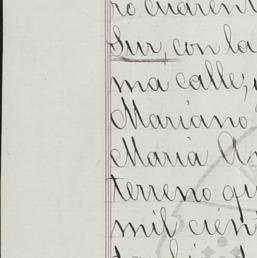 ro cuarent
Sur, con la
ma calle;
Mariano
Maria A
terreno qu
mil cien